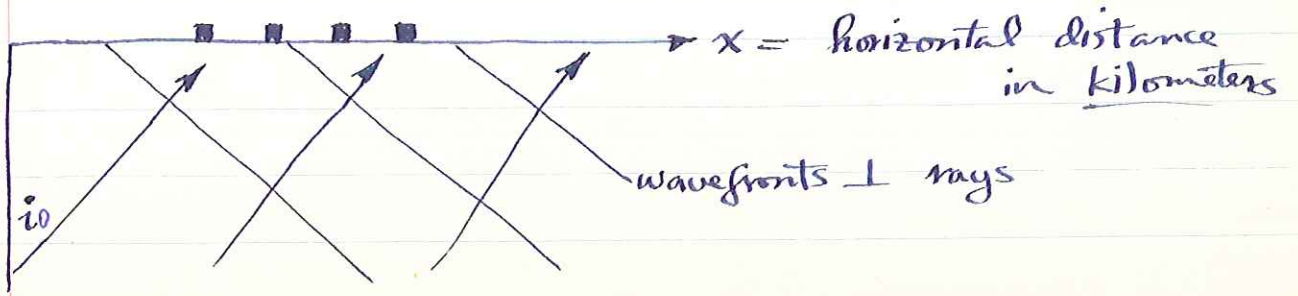 x = horizontal distance
in kilometers
wavefronts ⊥ rays
io